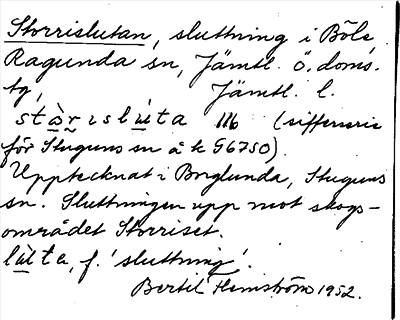 Storrislutan, sluttning i Böle
Ragunda sn, Jämtl. ö. doms.
tg, Jämtl. l.
stòrıslùta 11b (siffernris
för Stuguns sn å k G6750).
Upptecknat i Borglunda, Stuguns
sn. Sluttningen upp mot skogs-
området Storriset.
lùta, f. 'sluttning'.
Bertil Hemström 1952.